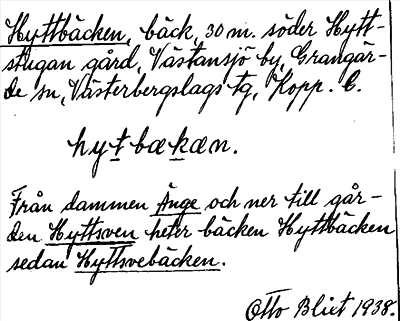 Hyttbäcken, bäck, 30 m. söder Hytt-
stugan gård, Västansjö by, Grangär-
de sn, Västerbergslags tg, Kopp. l.
hytbækæn.
Från dammen Änge och ner till går-
den Hyttsven heter bäcken Hyttbäcken
sedan Hyttsvebäcken.
Otto Blixt 1938.